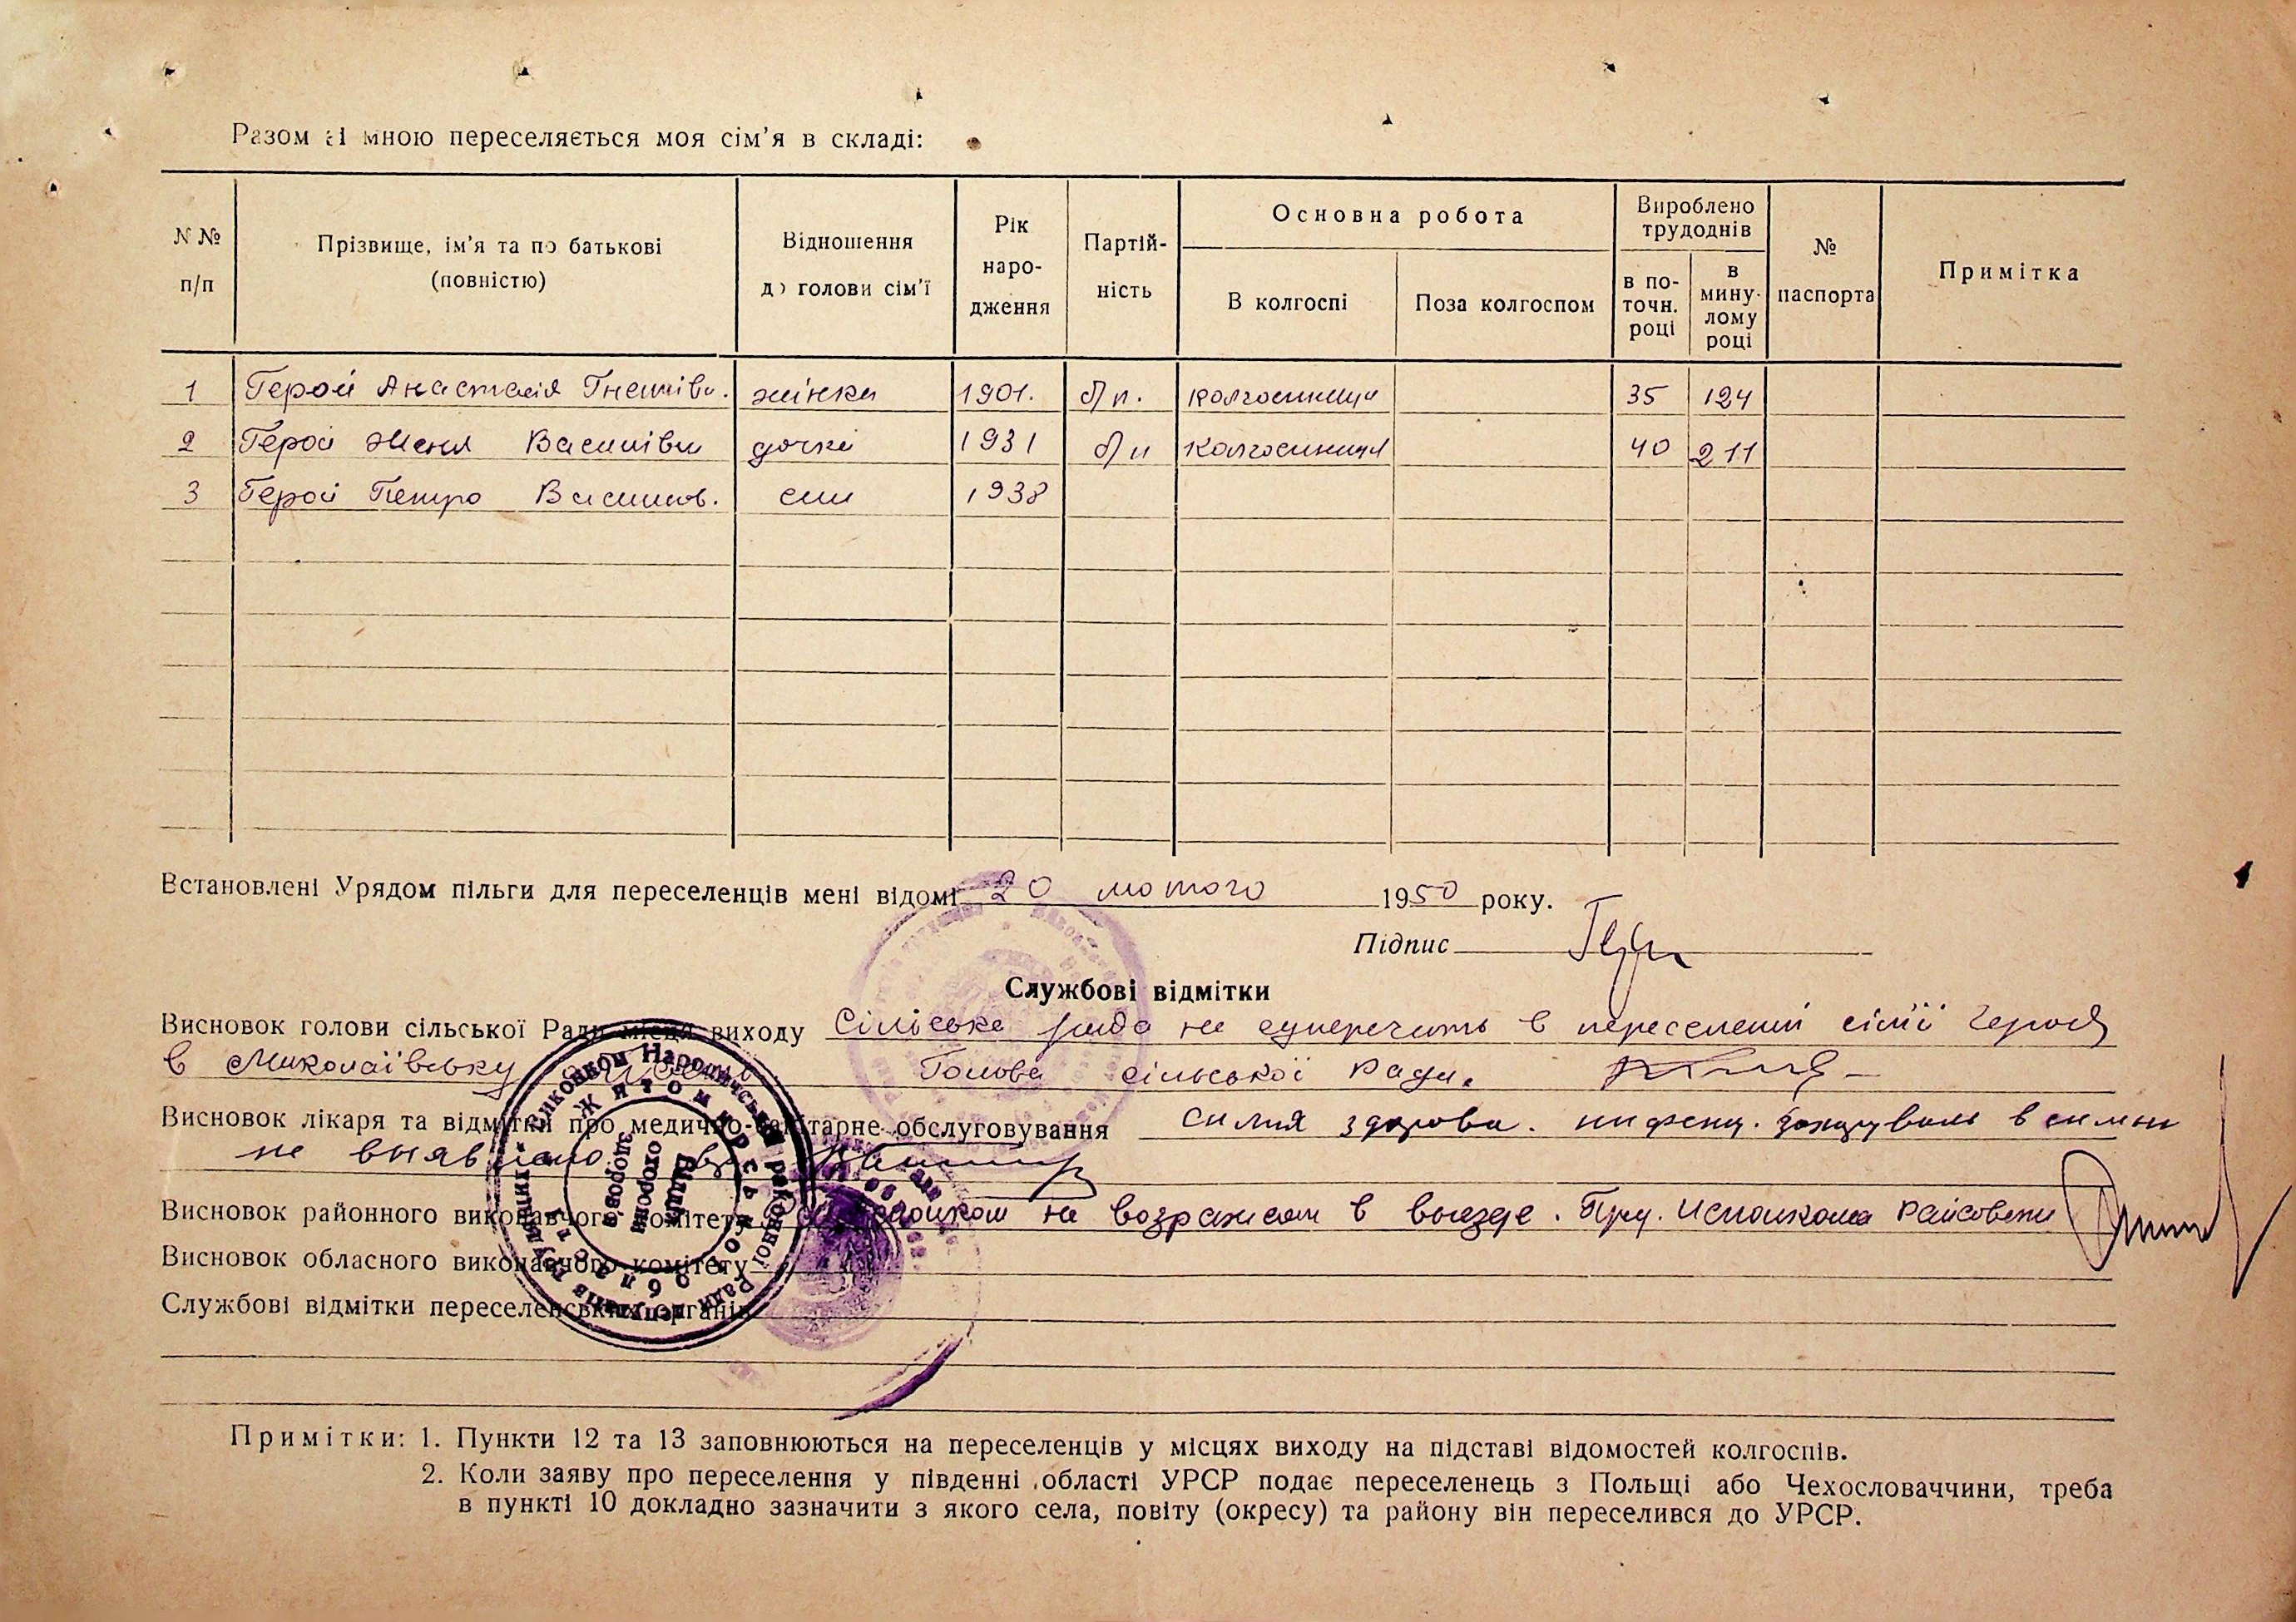 Разом зі мною переселяється моя сім'я в складі:
N №
п/п
Прізвище, ім'я та по батькові
(повністю)
Відношення
до голови сім'ї
Рік
наро-
дження
Партій-
ність
Основна робота
В колгоспі
Поза колгоспом
Вироблено
трудоднів
в по-
точн.
році
в
мину-
лому
році
№
паспорта
Примітка
1 Герой Анастасія жінка 1901. б/п. колгоспниця 35 124
2 Герой Женя Василівн дочка 1931 б/п колгоспниця 40 211
3 Герой Петро Васильов. син 1938
Встановлені Урядом пільги для переселенців мені відомі 20 лютого 1950 року.
Підпис
Службові відмітки
Висновок голови сільської Ради місця виходу Сільська рада не суперечить в переселенні сімї Героя
в Миколаївську область Голова сільської Ради.
Висновок лікаря та відмітки про медично-санітарне обслуговування симя здорова. инфекц. в симьи
не виявлено
Висновок районного виконавчого комітету не возражает в выезде. Пред. Исполкома Райсовета
Висновок обласного виконавчого комітету
Службові відмітки переселенських органів
Виконком Народицької районної Ради депутатів трудящих
Житомирської області
Відділ
охорони
здоров'я
Примітки: 1. Пункти 12 та 13 заповнюються на переселенців у місцях виходу на підставі відомостей колгоспів.
2. Коли заяву про переселення у південні області УРСР подає переселенець з Польщі або Чехословаччини, треба
в пункті 10 докладно зазначити з якого села, повіту (окресу) та району він переселився до УРСР.